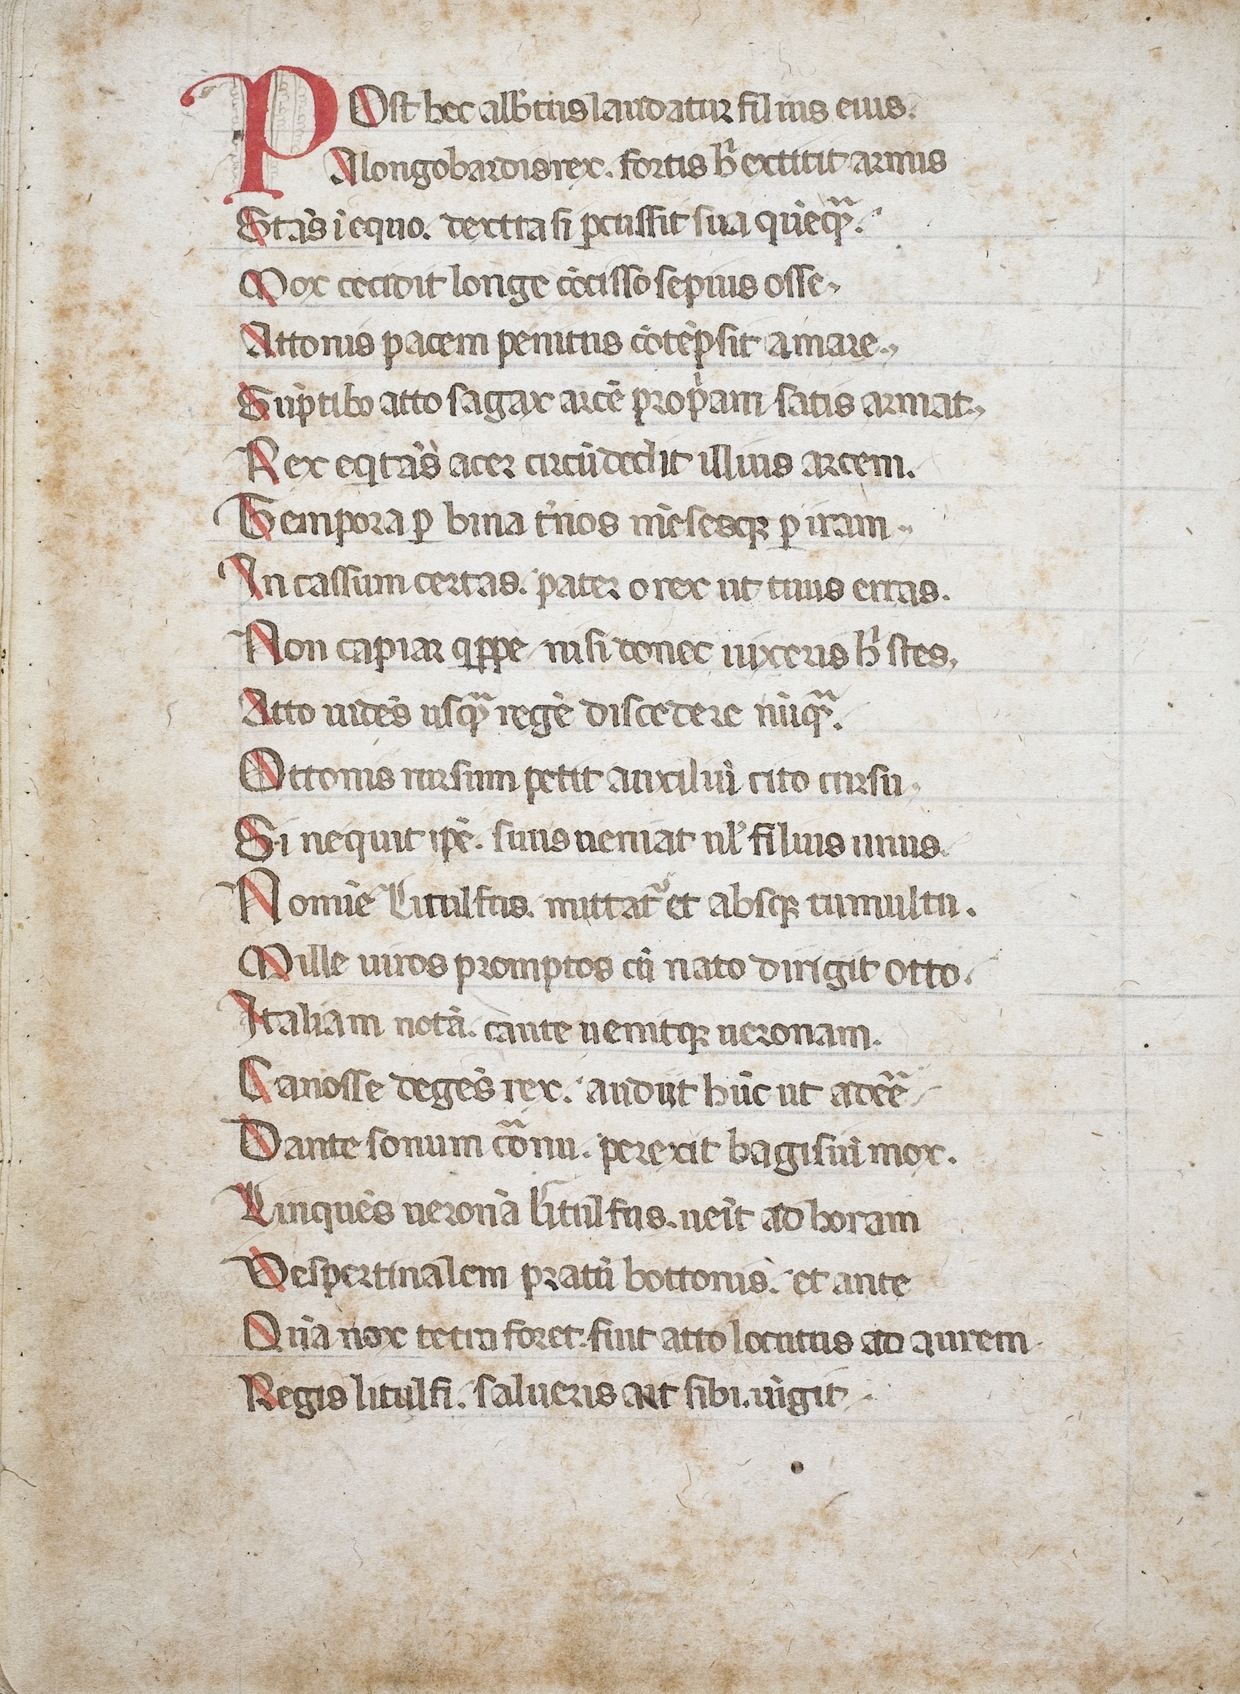 POst hec albtus laudatur filius eius.
A longobardis rex. fortis h̓ extitit armis
Stās ī equo. dextra si ꝑcussit sua quēqᷓ.
Mox cecidit longe cōcisso sepius osse.
Attonis pacem penitus cōtēpsit amare.
Sūptibꝰ atto sagax arcē propͥam satis armat.
Rex eqͥtās acer circūdedit illius arcem.
Tempora ꝑ bina t̓nos mēsesqꝫ ꝑ iram
In cassum certas. pater o rex ut tuus erras.
Non capiar qͥppe nisi donec uixeris h̓ stes.
Atto uidēs usqᷓ regē discedere nūqᷓ.
Ottonis rursum petit auxiliū cito cursu
Si nequit ip̄e. suus ueniat ul̓ filius unus.
Nomīe Litulfus. mittat᷑ et absqꝫ tumultu.
Mille uiros promptos cū nato dirigit otto.
Italiam notā. caute uenitqꝫ ueronam.
Canosse degēs rex. audiit hūc ut adeē̄
Dante sonum cᷓonu. perexit bagisiū mox.
Linquēs ueronā litulfus. ueīt ad horam
Vespertinalem pratū bottonis. et ante
Quā nox tetra foret. fuit atto locutus ad aurem
Regis litulfi. salueris ait sibi. uīgit